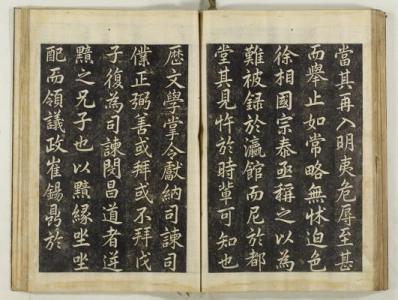 當其再入明夷危辱至甚
而擧止如常略無怵迫色
徐相國宗泰亟稱之以為
難被録於瀛館而尼於都
堂其見忤於時輩可知也
歷文學掌令獻納司諫司
僕正弼善或拜或不拜戊
子復為司諫閔昌道者
黯之兄子也以黯緣坐
配而領議政崔錫鼎於